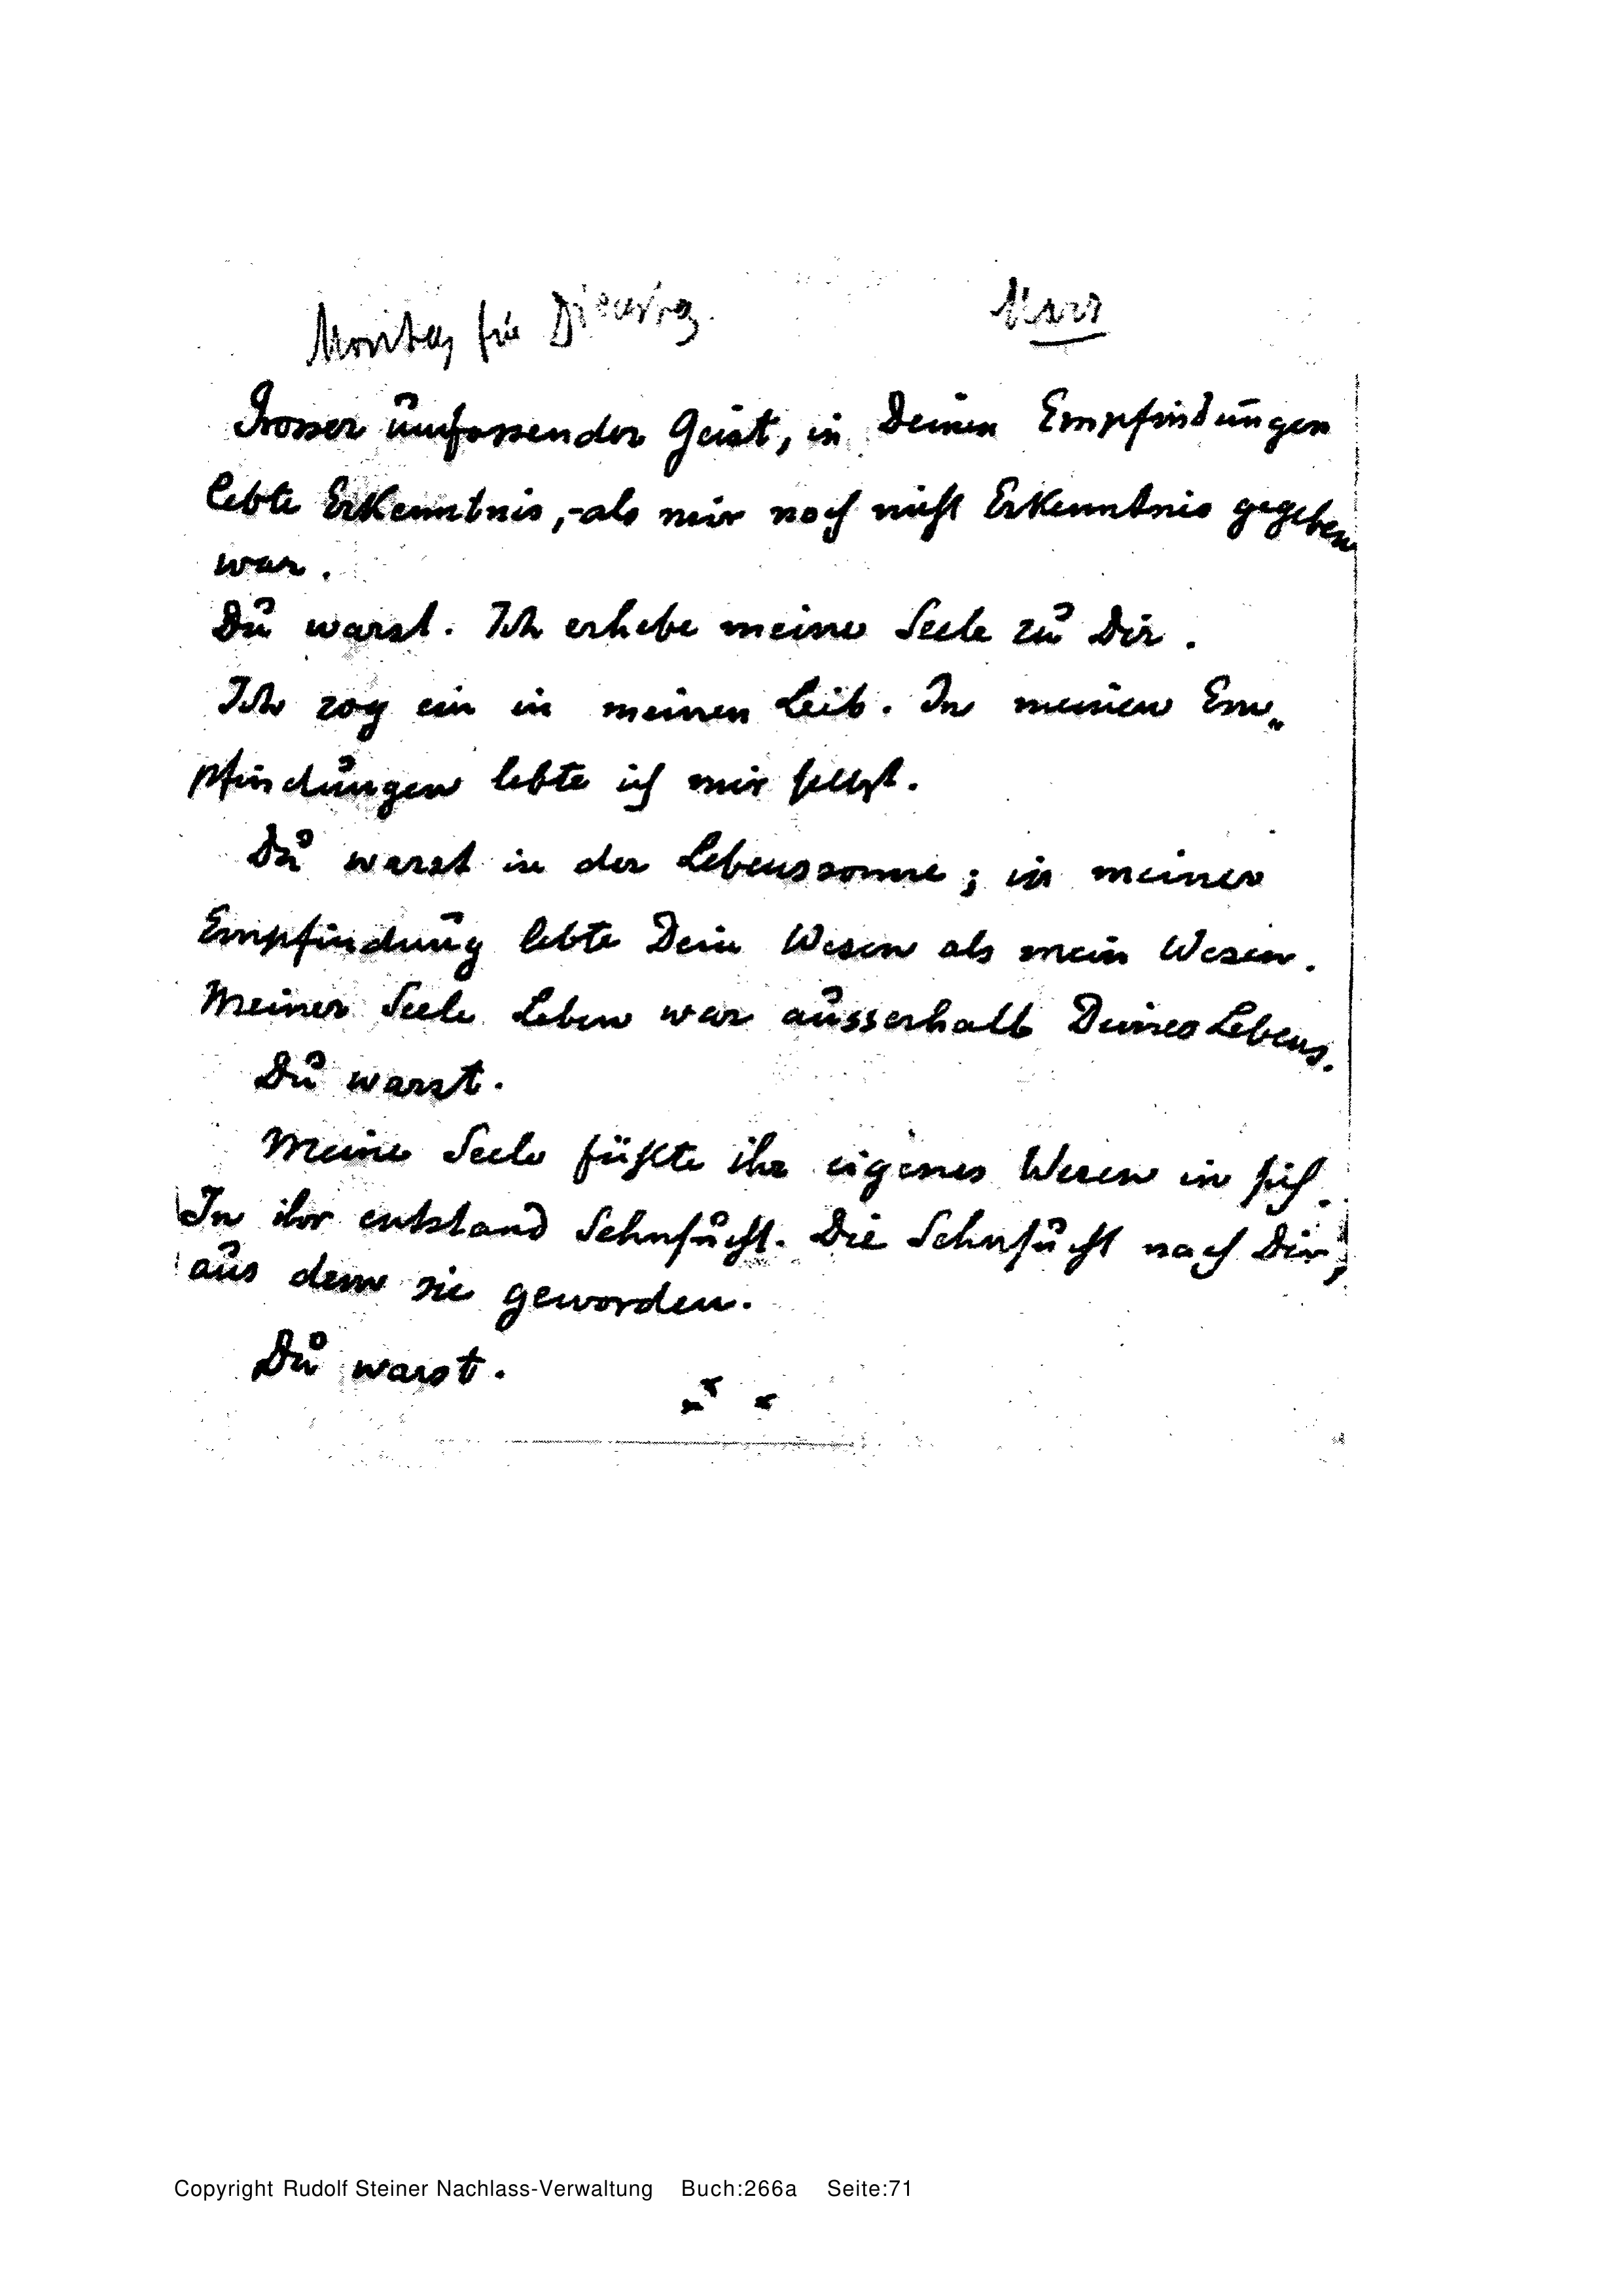 Montag für Dienstag. Mars
Grosser umfassender Geist, in Deinen Empfindungen
lebte Erkenntnis,-als mir noch nicht Erkenntnis gegeben
war.
Du warst. Ich erhebe meine Seele zu Dir.
Ich zog ein in meinen Leib. In meinen Em„
pfindungen lebte ich mir selbst.
Du warst in der Lebenssonne; in meiner
Empfindung lebte Dein Wesen als mein Wesen.
Meiner Seele Leben war ausserhalb Deines Lebens.
Du warst.
Meine Seele fühlte ihr eigenes Wesen in sich.
In ihr entstand Sehnsucht. Die Sehnsucht nach Dir,
aus dem sie geworden.
Du warst.
Copyright Rudolf Steiner Nachlass-Verwaltung Buch:266a Seite:71